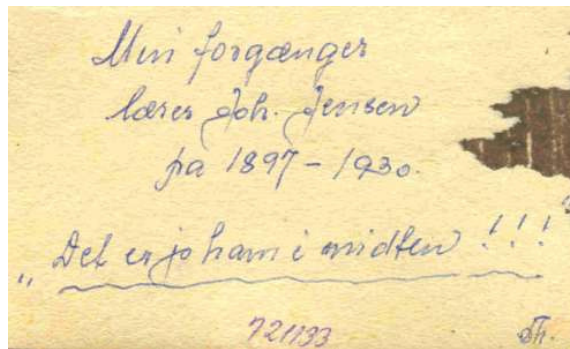 Min forgænger
lærer Joh. Jensen
på 1897-1930.
"Det er jo ham i midten!!!"
721133
Th.